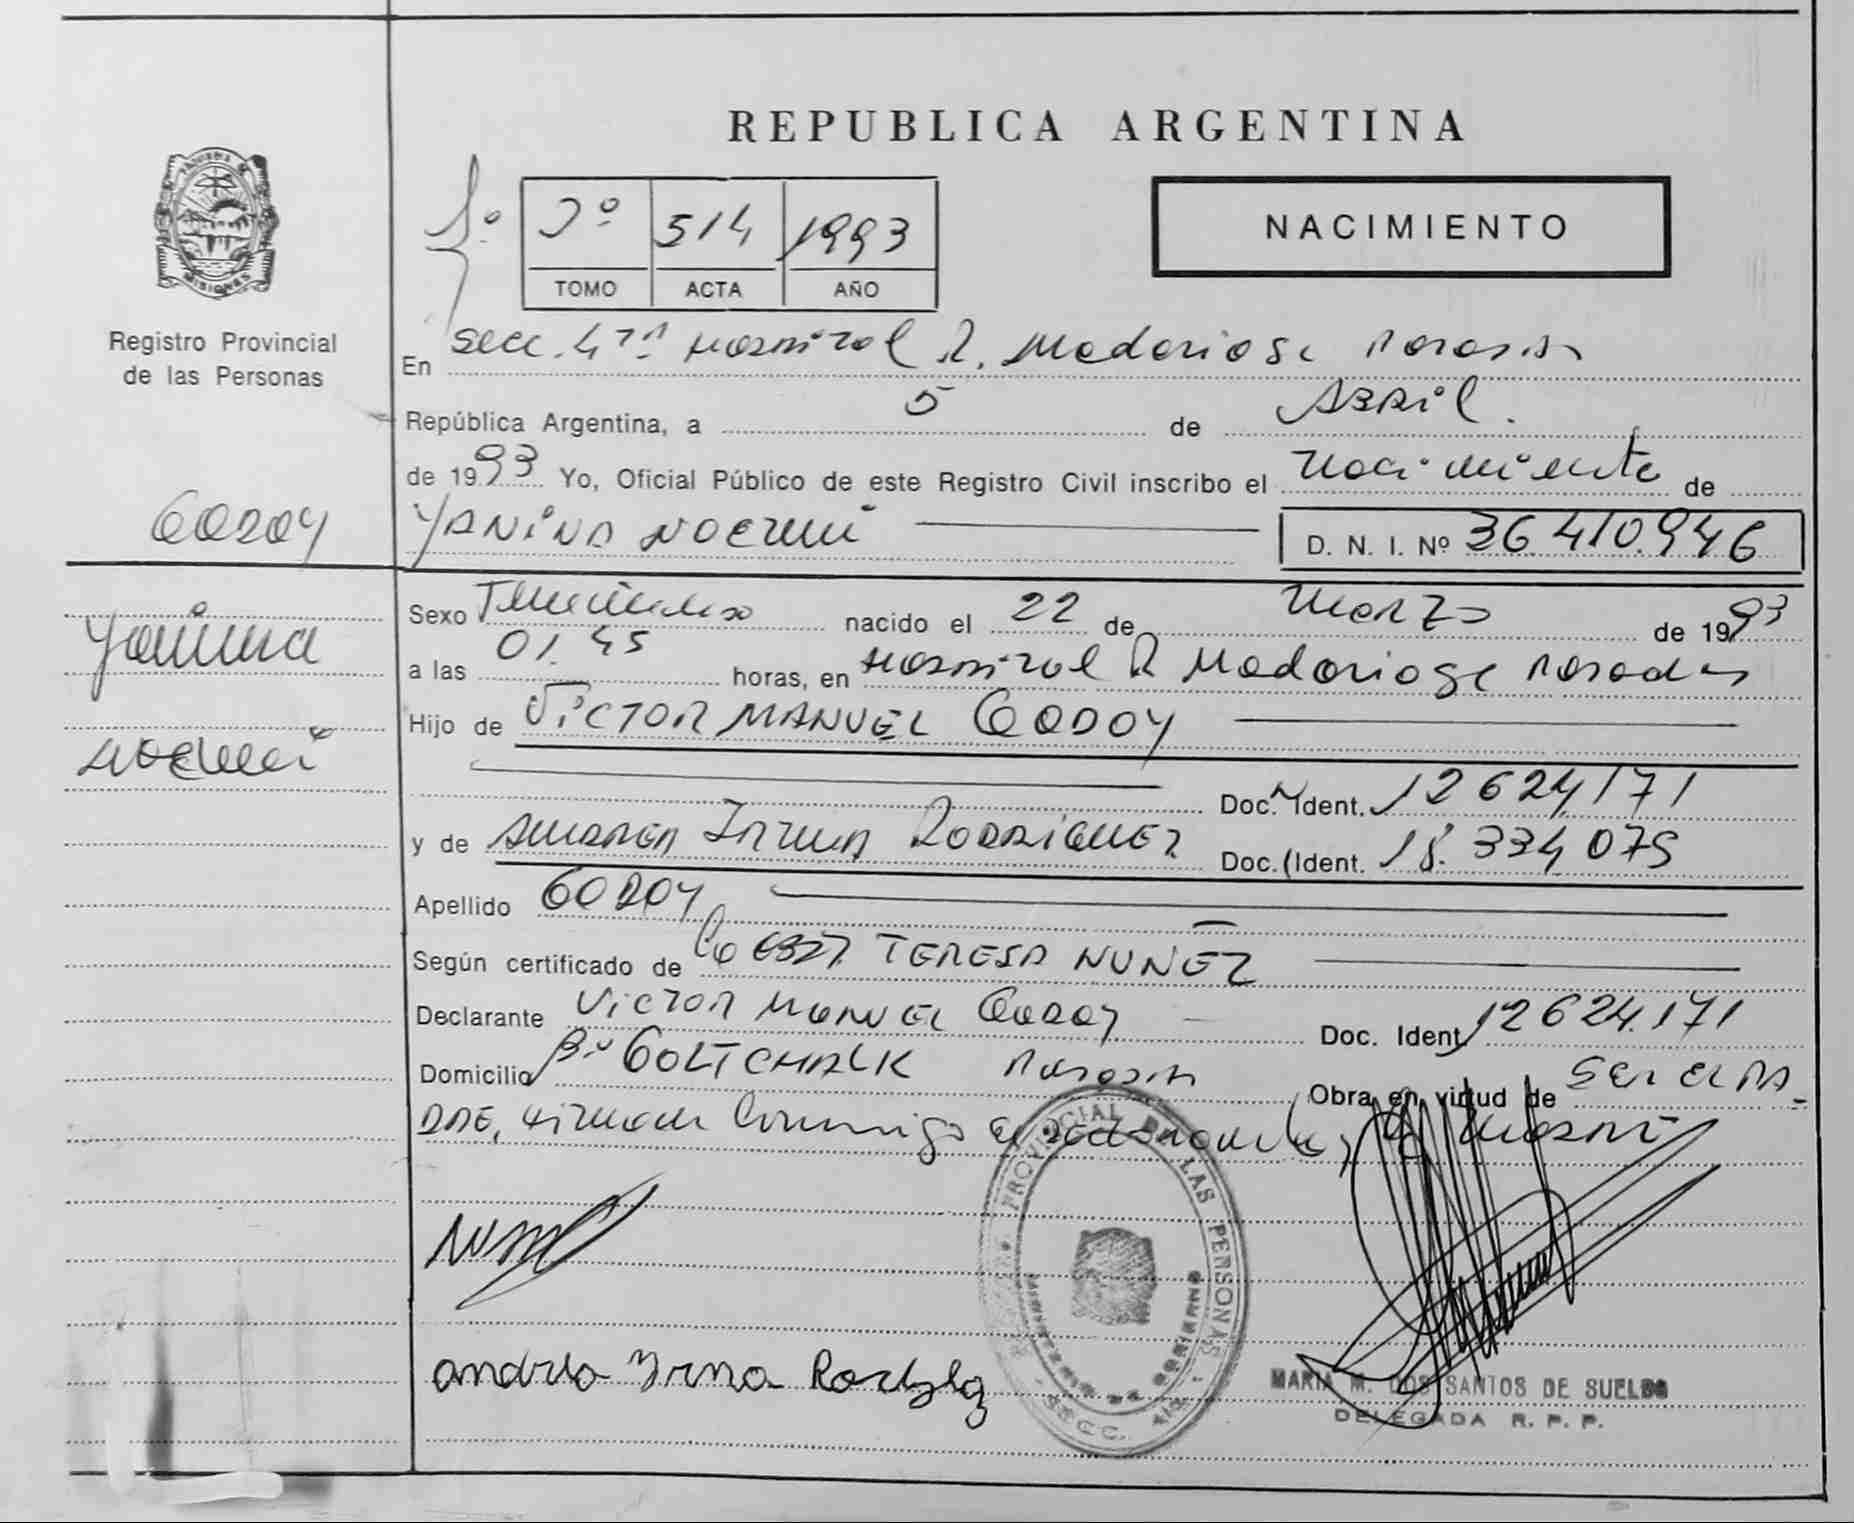 REPUBLICA ARGENTINA
MISIONES
Registro Provincial
de las Personas
514 1993
TOMO ACTA AÑO
NACIMIENTO
En Secc. 4ta Hospital R. Madariaga Posadas
República Argentina, a 5 de Abril.
de 1993 Yo, Oficial Público de este Registro Civil inscribo el Nacimiento de
GODOY
YANINA NOEMI
D. N. I. Nº 36.410.946
Yanina
Noemi
Sexo Femenino nacido el 22 de Marzo de 1993
a las 01.45 horas, en Hospital R Madariaga Posadas
Hijo de VICTOR MANUEL GODOY
Doc. Ident. 12624171
y de ANDREA IRMA RODRIGUEZ Doc. Ident. 18.334075
Apellido GODOY
Según certificado de TERESA NUÑEZ
Declarante VICTOR MANUEL GODOY Doc. Ident 12624.171
Domicilio Bº GOTTCHALK Posadas Obra en virtud de SER EL PA
DRE, firman conmigo el declarante y la
Andrea Irma
REGISTRO PROVINCIAL DE LAS PERSONAS
MINISTERIO DE GOBIERNO
SECC. 4ta
MARIA M. DOS SANTOS DE SUELDO
DELEGADA R. P. P.